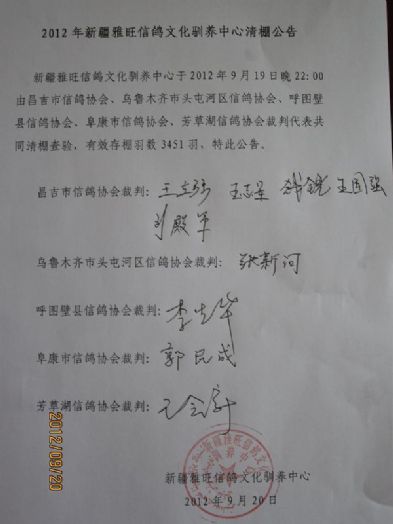 2012年新疆雅旺信鸽文化驯养中心清棚公告
新疆雅旺信鸽文化驯养中心于2012年9月19日晚22:00
由昌吉市信鸽协会、乌鲁木齐市头屯河区信鸽协会、呼图壁
县信鸽协会、阜康市信鸽协会、芳草湖信鸽协会裁判代表共
同清棚查验，有效存棚羽数3451羽，特此公告。
昌吉市信鸽协会裁判：王 王志 王国强
刘殿军
乌鲁木齐市头屯河区信鸽协会裁判：张新河
呼图壁县信鸽协会裁判：李 华
阜康市信鸽协会裁判：郭民成
芳草湖信鸽协会裁判：
新疆雅旺信鸽文化驯养中心
2012年9月20日
2012/09/20